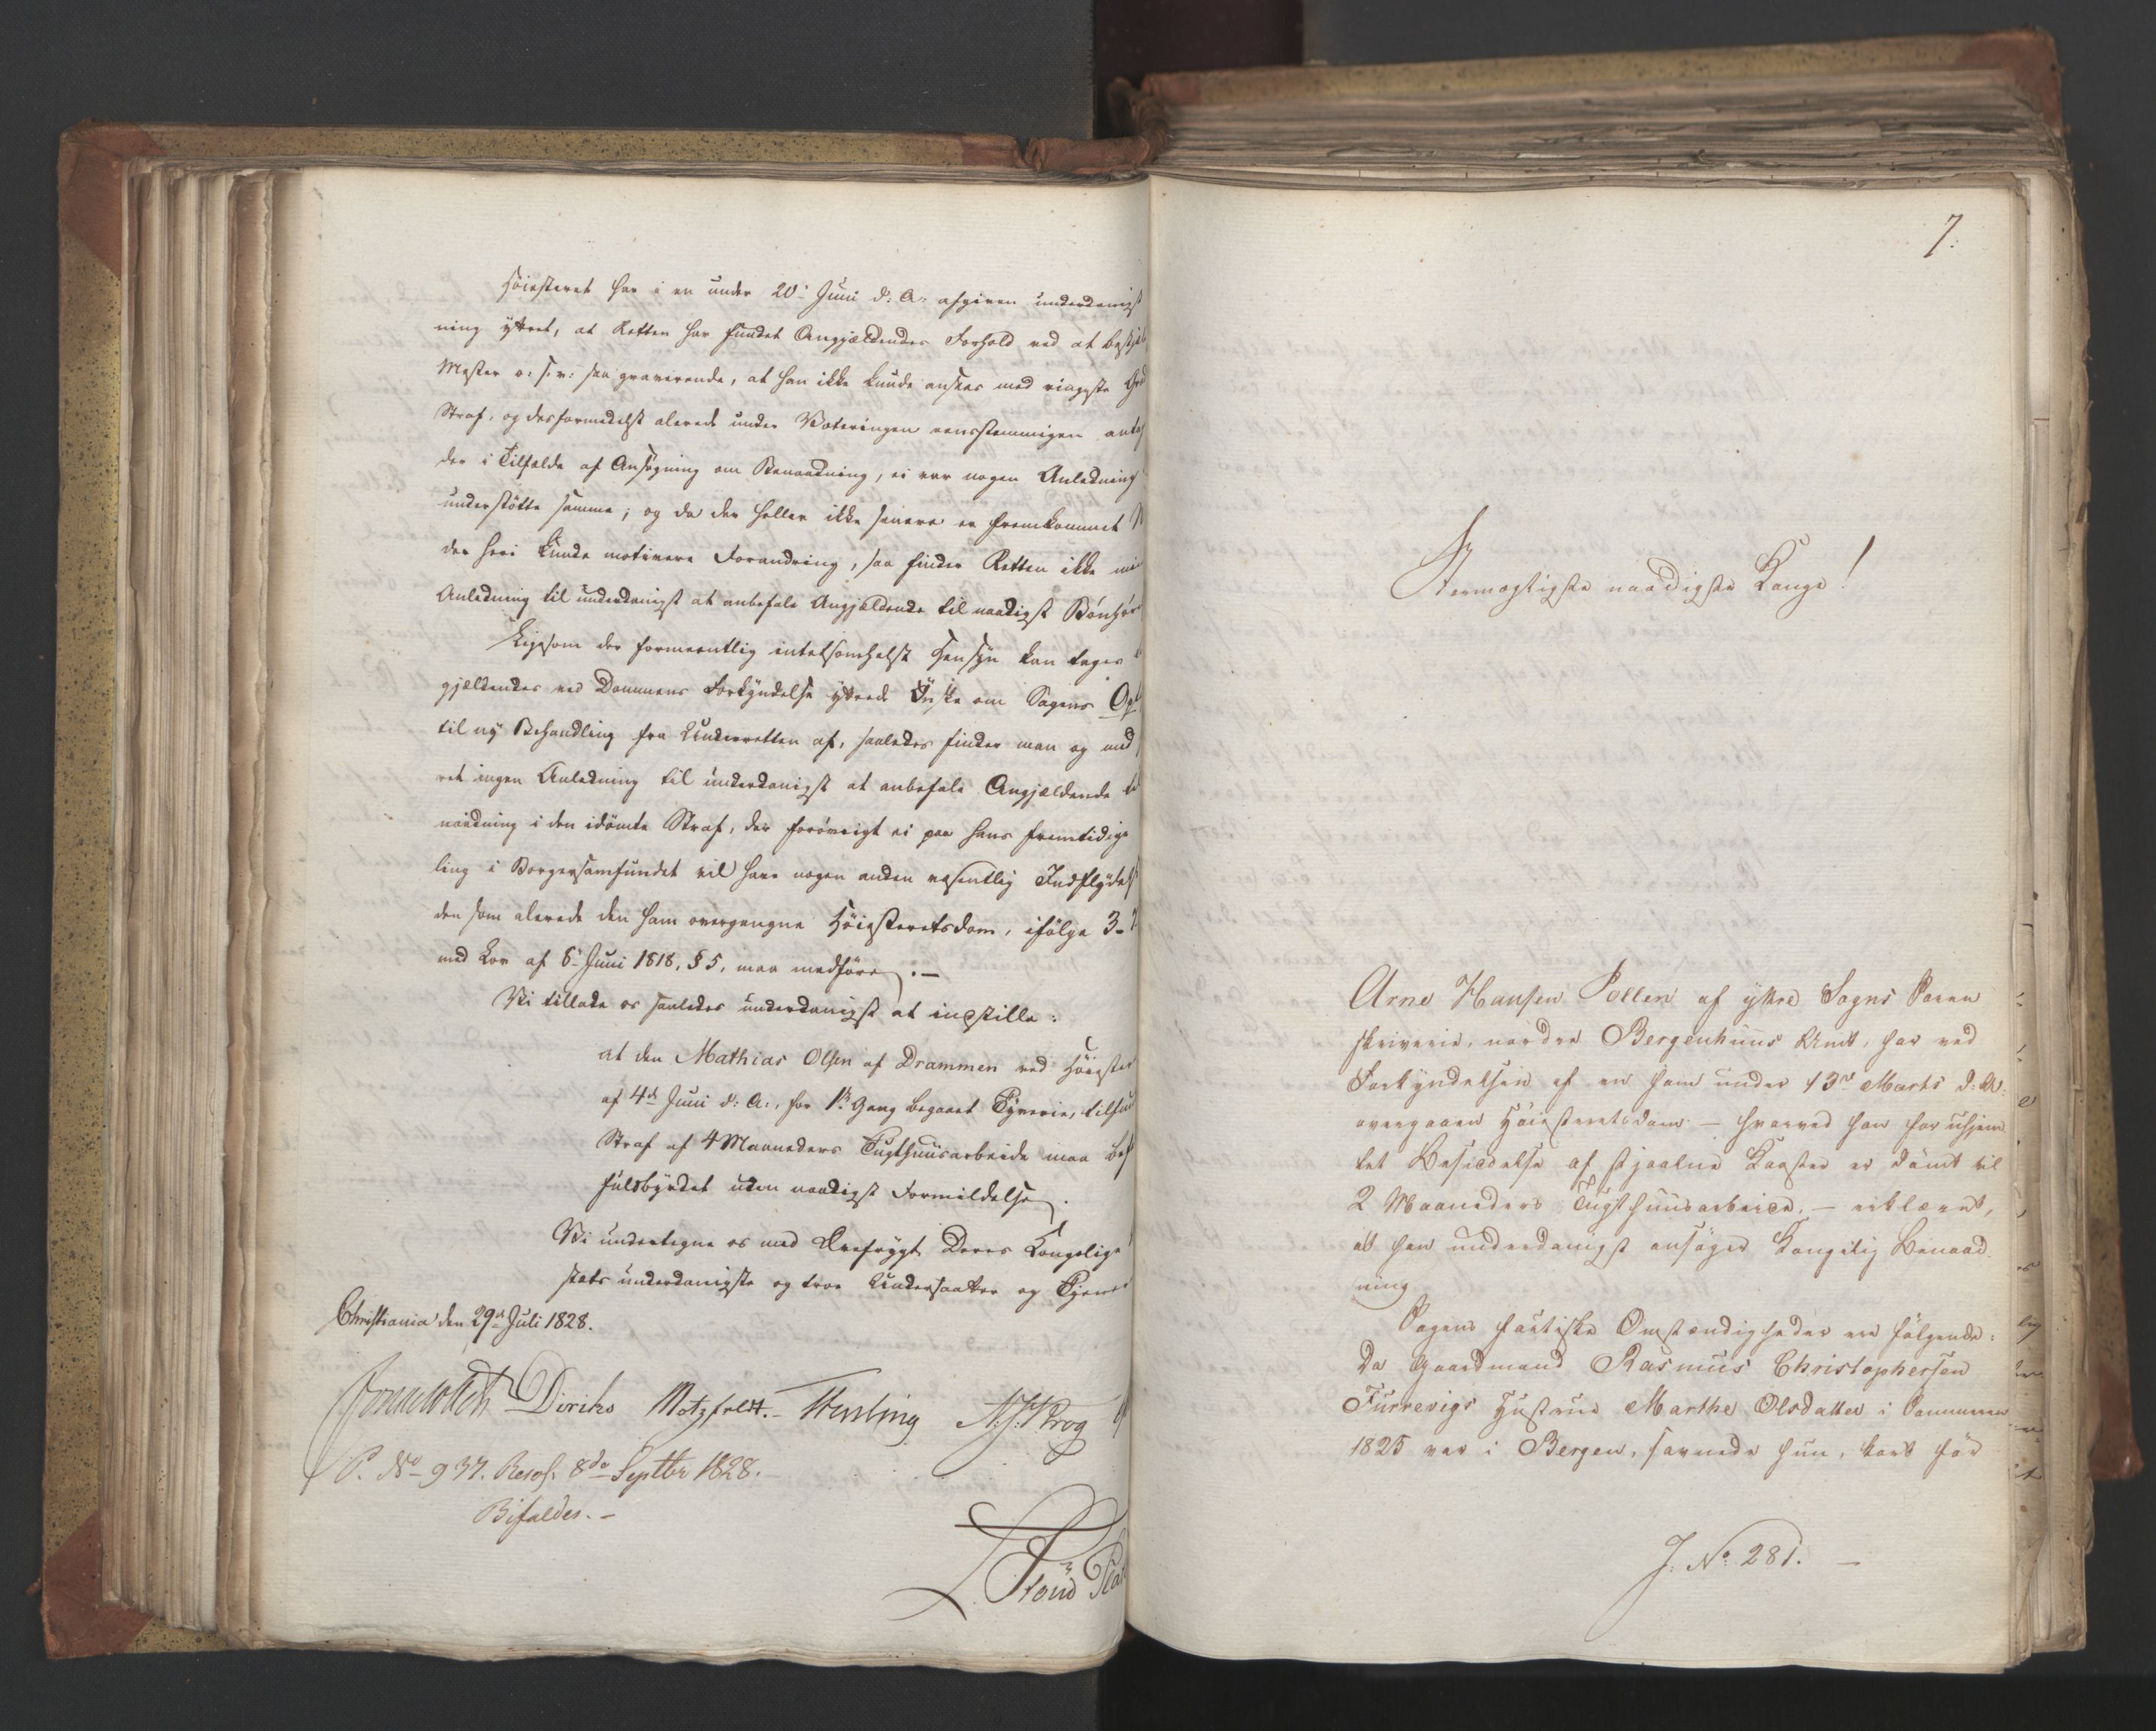 Höiesteret har i en under 20de Juni d: A: afgiven underdanigst
ning yttret, at Retten har fundet Angjældendes Forhold ved at bestjæle
Mester o: s: v: saa graverende, at han ikke kunde ansees med ringeste Grad
Straf, og desformedelst alerede under Voteringen eensstemmigen antog
der i Tilfælde af Ansøgning om Benaadning, ei var nogen Anledning
understötte samme; og da der heller ikke senere er fremkommet
der heri kunde motivere Forandring, saa finder Retten ikke
Anledning til underdanigst at anbefale Angjældende til naadigst Bönhör
Ligesom der formeentlig intetsomhelst Hensyn kan tages
gjældendes ved Dommens Forkyndelse yttrede Önske om Sagens
til ny Behandling fra Underretten af, saaledes finder man og med
ret ingen Anledning til underdanigst at anbefale Angjældende til
naadning i den idömte Straf, der forövrigt ei paa hans fremtidige
ling i Borgersamfundet vil have nogen anden væsentlig Indflydelse
den som alerede den ham overgangne Höiesteretsdom, ifölge 3-
med Lov af 6te Juni 1818, § 5, maa medföre. —
Vi tillade os saaledes underdanigst at indstille:
at den Mathias Olsen af Drammen ved Höiester
af 4de Juni d: A:, for 1ste Gang begaaet Tyverie, tilfund
Straf af 4 Maaneders Tugthuusarbeide maa
fuldbyrdet uden naadigst Formildelse.
Vi undertegne os med Ærefrygt Deres Kongelige
stæts underdanigste og troe Undersaatter og Tjenere
Christiania den 29de Juli 1828.
Diriks Motzfeldt. N. J. Krog
P. No 937. Resol: 8de Septbr 1828.
Bifaldes. -
7.
Stormægtigste naadigste Konge!
Arne Hansen Pollen af yttre Sogns Soren
skriverie, nordre Bergenhuus Amt, har ved
Forkyndelsen af en ham under 13de Marts d: A:
overgaaen Höiesteretsdom — hvorved han for uhjem
let Besiddelse af stjaalne Koster er dömt til
2 Maaneders Tugthuusarbeide, — erklæret,
at han underdanigst ansöger Kongelig Benaad
ning
Sagens factiske Omstændigheder ere fölgende:
Da Gaardmand Rasmus Christophersen
Furrevigs Hustrue Marthe Olsdatter i Sommeren
1825 var i Bergen, savnede hun, kort för
J. No 281. —